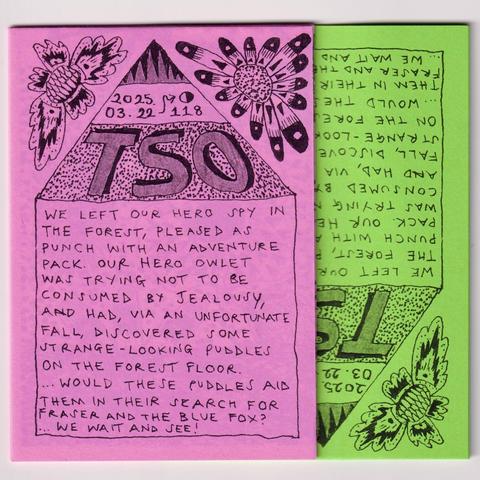 2025 118
03.22
TSO
WE LEFT OUR HERO SPY IN
THE FOREST, PLEASED AS
PUNCH WITH AN ADVENTURE
PACK. OUR HERO OWLET
WAS TRYING NOT TO BE
CONSUMED BY JEALOUSY,
AND HAD, VIA AN UNFORTUNATE
FALL, DISCOVERED SOME
STRANGE-LOOKING PUDDLES
ON THE FOREST FLOOR.
...WOULD THESE PUDDLES AID
THEM IN THEIR SEARCH FOR
FRASER AND THE BLUE FOX?
... WE WAIT AND SEE!
2025
03.22
TS
WE LEFT OUR
THE FOREST, P
PUNCH WITH A
PACK. OUR HE
WAS TRYING N
CONSUMED BY
AND HAD, VIA
FALL, DISCOVE
STRANGE-LOOK
ON THE FORES
... WOULD THES
THEM IN THEIR
FRASER AND THE
... WE WAIT AND